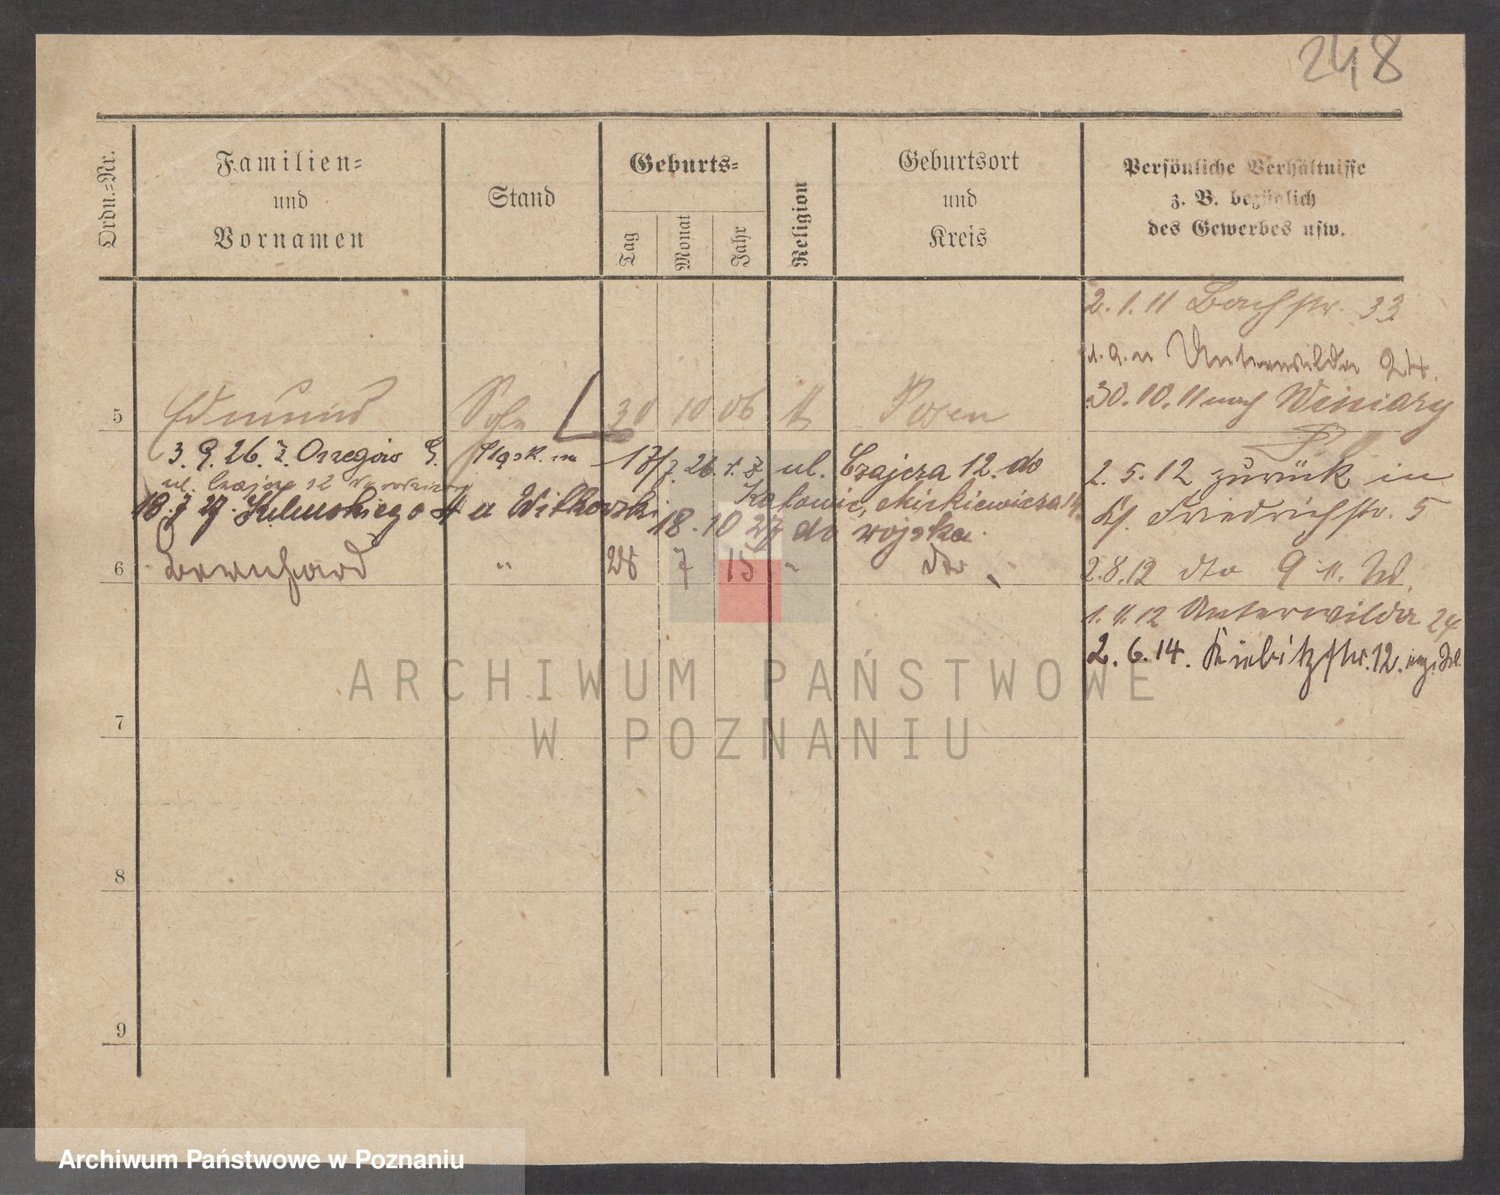 248
Ordn.-Nr.
Familien-
und
Vornamen
Stand
Geburts-
Tag
Monat
Jahr
Religion
Geburtsort
und
Kreis
Persönliche Verhältnisse
z. B. bezüglich
des Gewerbes usw.
2. 1. 11 Bachstr. 33
Unterwilda 24.
30. 10. 11 nach Winiary
5 Edmund Sohn 30 10 06 Posen
3. 9. 26. z.
17/7. 26. ul. Czajcza 12. do
2. 5. 12 zurück in
ul. Czajcza 12
Katowic, Mickiewicza
18. 7 27. a Witkowski
18. 10 27 do wojska.
Friedrichstr. 5
6 Bernhard " 28 7 15 " dto
2. 8. 12 dto 9
1. 11. 12 Unterwilda 24
2. 6. 14. Kiebitzstr. 12.
7
8
9
ARCHIWUM PAŃSTWOWE
W POZNANIU
Archiwum Państwowe w Poznaniu